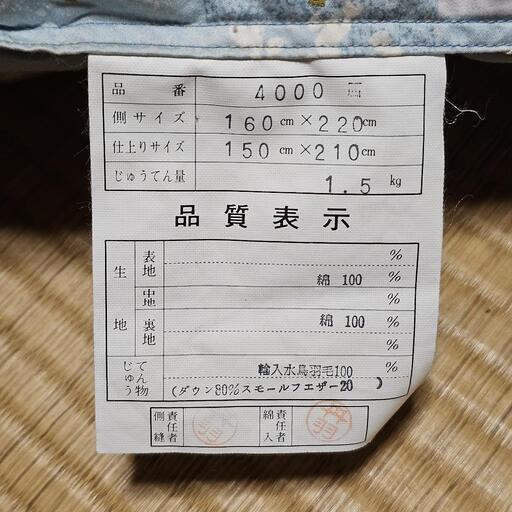 品番 4000
側サイズ 160cm×220cm
仕上りサイズ 150cm×210cm
じゅうてん量 1.5kg
品質表示
生地 表地 %
綿 100 %
中地 %
裏地 綿 100 %
%
じゅうてん物 輸入水鳥羽毛100 %
(ダウン80%スモールフェザー20 )
側縫責任者
綿入責任者